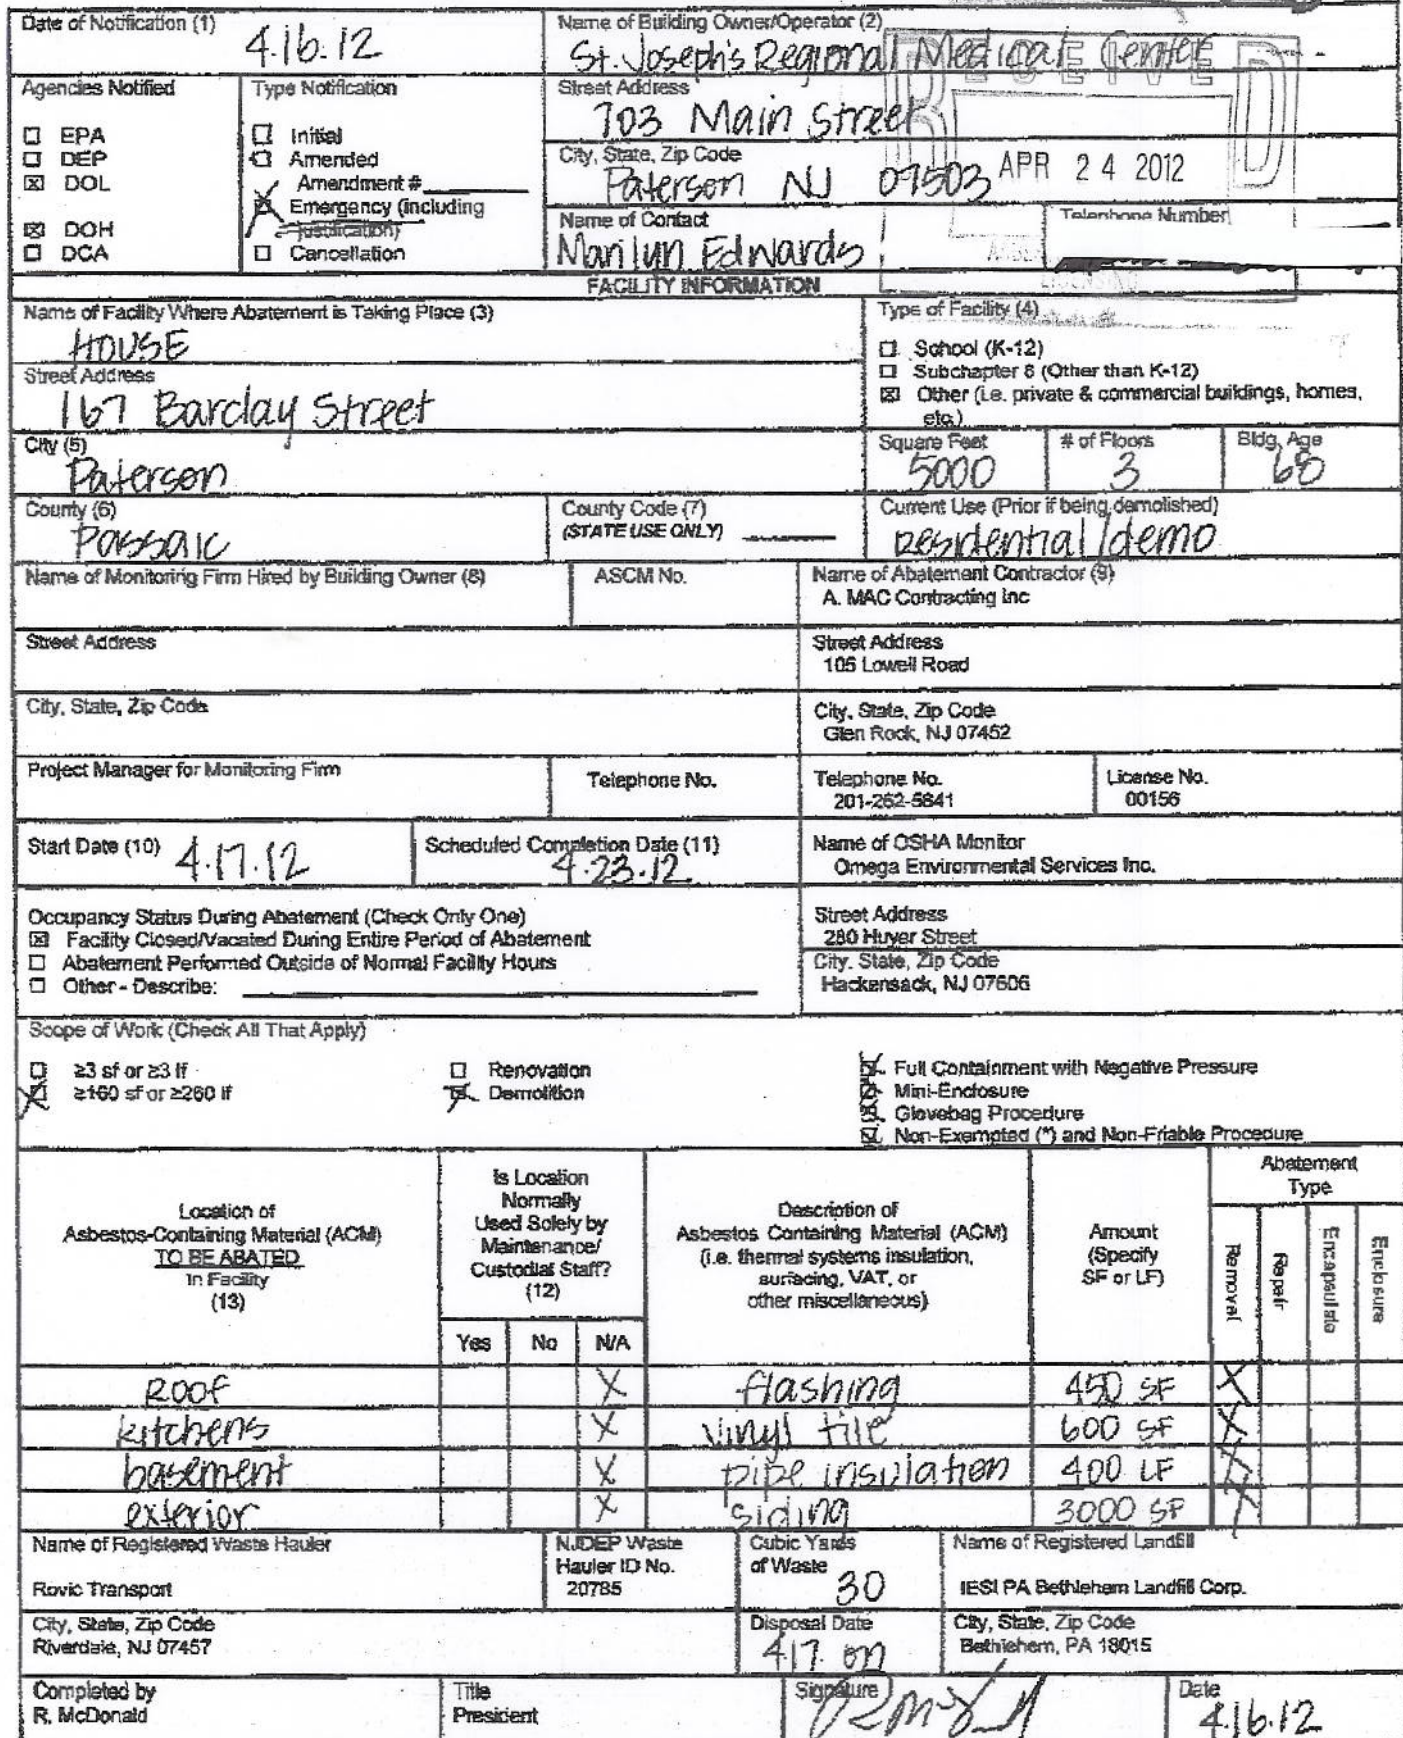 Date of Notification (1)
4.16.12
Name of Building Owner/Operator (2)
St. Joseph's Regional Medical Center
RECEIVED
Agencies Notified
☐ EPA
☐ DEP
☒ DOL
☒ DOH
☐ DCA
Type Notification
☐ Initial
☐ Amended
Amendment #
☒ Emergency (including
justification)
☐ Cancellation
Street Address
703 Main Street
City, State, Zip Code
Paterson NJ 07503
APR 24 2012
Name of Contact
Marilyn Edwards
Telephone Number
LICENSING
FACILITY INFORMATION
Name of Facility Where Abatement is Taking Place (3)
HOUSE
Street Address
167 Barclay Street
Type of Facility (4)
☐ School (K-12)
☐ Subchapter 8 (Other than K-12)
☒ Other (i.e. private & commercial buildings, homes,
etc.)
City (5)
Paterson
Square Feet
5000
# of Floors
3
Bldg. Age
68
County (6)
Passaic
County Code (7)
(STATE USE ONLY)
Current Use (Prior if being demolished)
Residential/demo
Name of Monitoring Firm Hired by Building Owner (8)
ASCM No.
Name of Abatement Contractor (9)
A. MAC Contracting Inc
Street Address
Street Address
105 Lowell Road
City, State, Zip Code
City, State, Zip Code
Glen Rock, NJ 07452
Project Manager for Monitoring Firm
Telephone No.
Telephone No.
201-262-5841
License No.
00156
Start Date (10) 4.17.12
Scheduled Completion Date (11)
4.23.12
Name of OSHA Monitor
Omega Environmental Services Inc.
Occupancy Status During Abatement (Check Only One)
☒ Facility Closed/Vacated During Entire Period of Abatement
☐ Abatement Performed Outside of Normal Facility Hours
☐ Other - Describe:
Street Address
280 Huyer Street
City, State, Zip Code
Hackensack, NJ 07606
Scope of Work (Check All That Apply)
☐ ≥3 sf or ≥3 lf
☒ ≥160 sf or ≥260 lf
☐ Renovation
☒ Demolition
☒ Full Containment with Negative Pressure
☒ Mini-Enclosure
☒ Glovebag Procedure
☒ Non-Exempted (*) and Non-Friable Procedure
Location of
Asbestos-Containing Material (ACM)
TO BE ABATED
In Facility
(13)
Is Location
Normally
Used Solely by
Maintenance/
Custodial Staff?
(12)
Yes No N/A
Description of
Asbestos Containing Material (ACM)
(i.e. thermal systems insulation,
surfacing, VAT, or
other miscellaneous)
Amount
(Specify
SF or LF)
Abatement
Type
Removal
Repair
Encapsulate
Enclosure
Roof X flashing 450 SF X
kitchens X vinyl tile 600 SF X
basement X pipe insulation 400 LF X
exterior X siding 3000 SF X
Name of Registered Waste Hauler
Rovic Transport
NJDEP Waste
Hauler ID No.
20785
Cubic Yards
of Waste
30
Name of Registered Landfill
IESI PA Bethlehem Landfill Corp.
City, State, Zip Code
Riverdale, NJ 07457
Disposal Date
4.17. on
City, State, Zip Code
Bethlehem, PA 18015
Completed by
R. McDonald
Title
President
Signature
Date
4.16.12